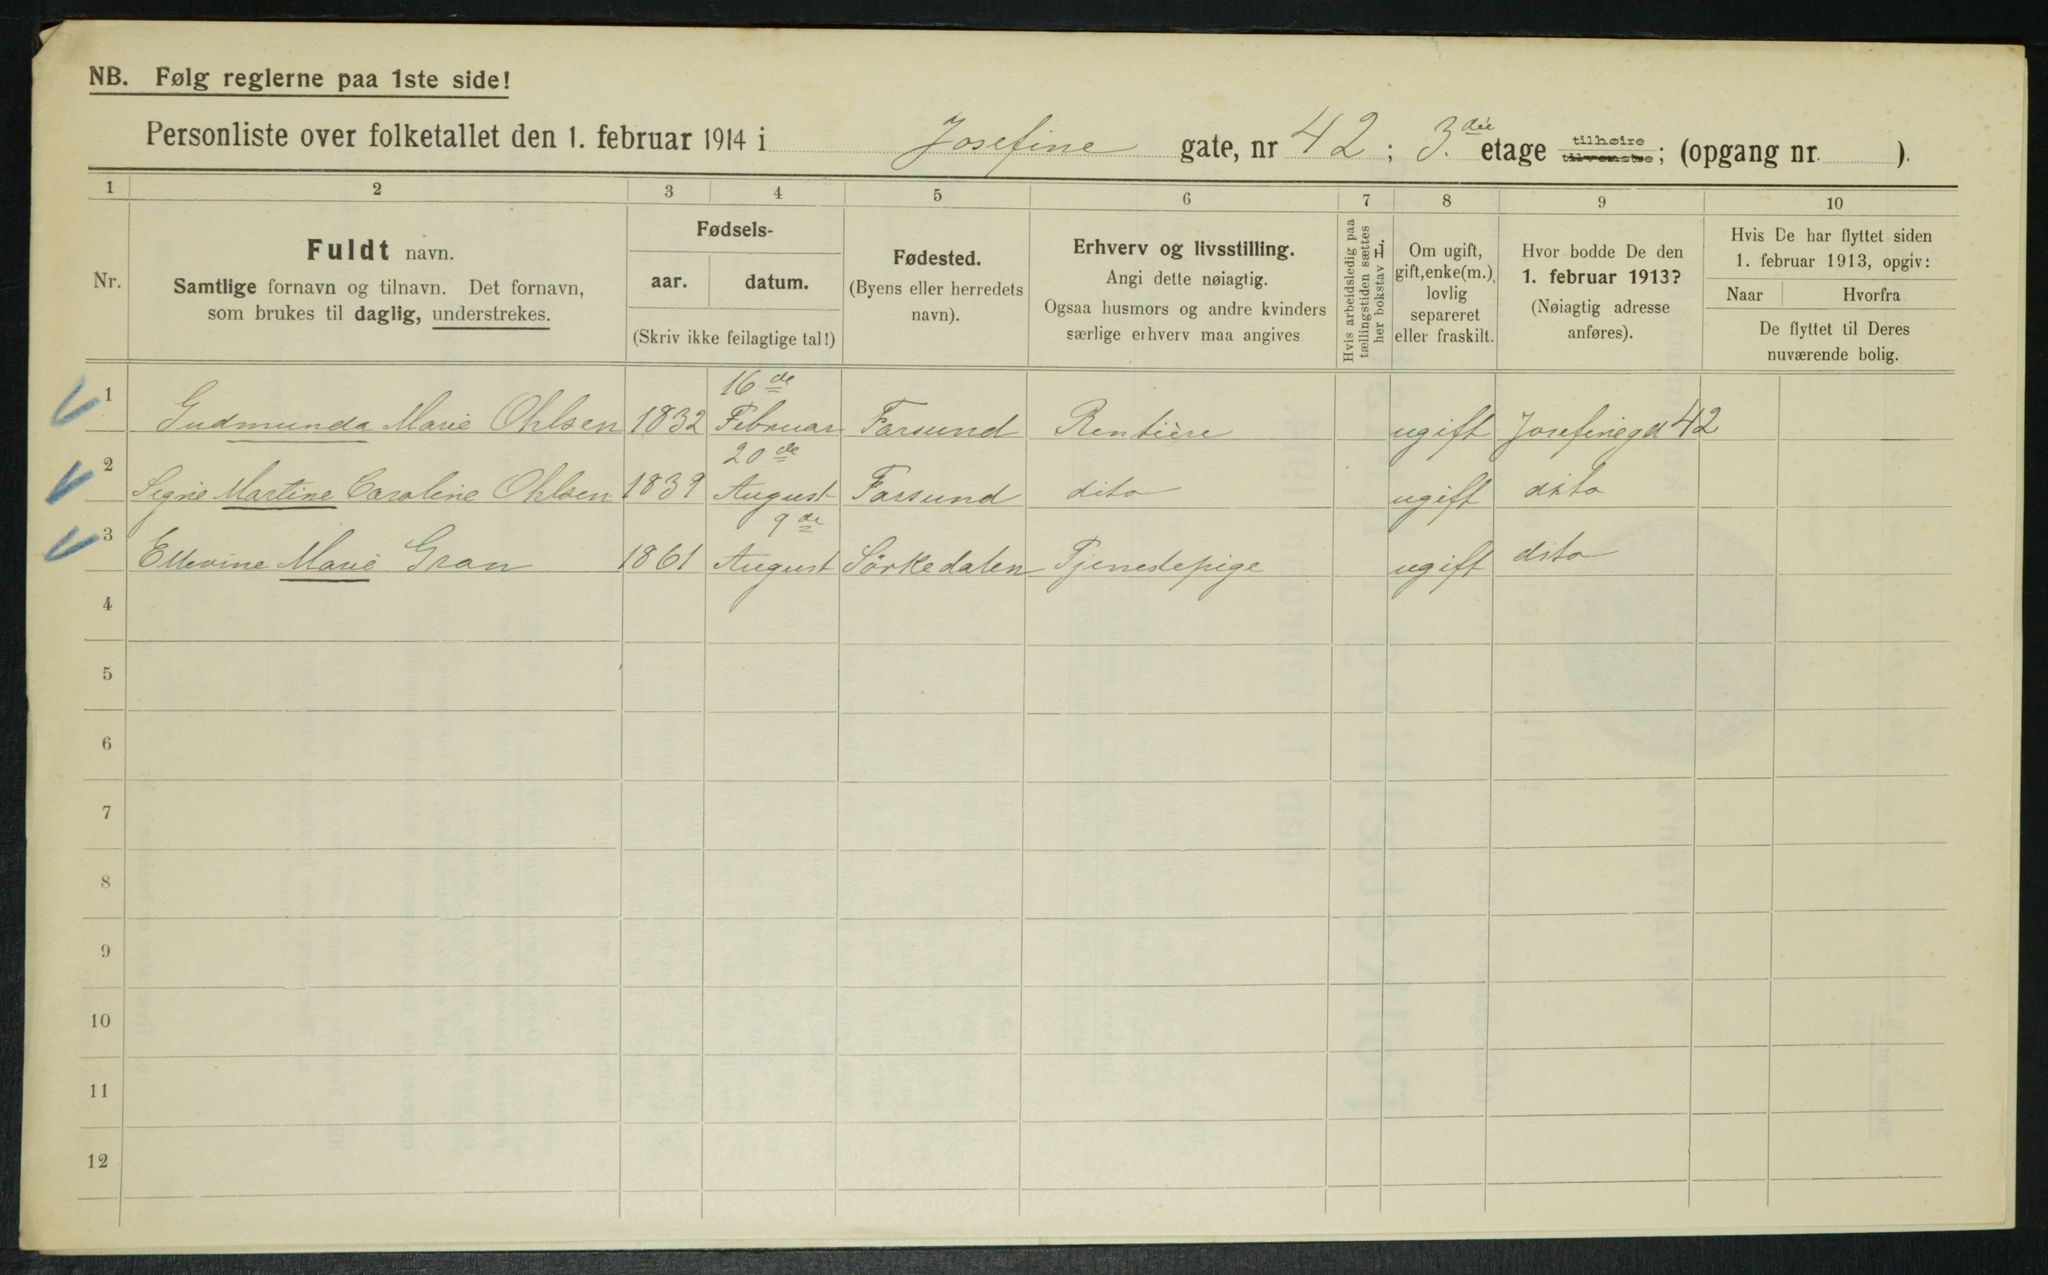 NB. Følg reglerne paa 1ste side!
Personliste over folketallet den 1. februar 1914 i Josefine gate, nr 42; 3.die etage tilhøire tilvenstre; (opgang nr. ).
1 2 3 4 5 6 7 8 9 10
Nr.
Fuldt navn.
Samtlige fornavn og tilnavn. Det fornavn,
som brukes til daglig, understrekes.
Fødsels-
aar. datum.
(Skriv ikke feilagtige tal!)
Fødested.
(Byens eller herredets
navn).
Erhverv og livsstilling.
Angi dette nøiagtig.
Ogsaa husmors og andre kvinders
særlige erhverv maa angives
Hvis arbeidsledig paa
tællingstiden sættes
her bokstav L.
Om ugift,
gift, enke(m.),
lovlig
separeret
eller fraskilt.
Hvor bodde De den
1. februar 1913?
(Nøiagtig adresse
anføres).
Hvis De har flyttet siden
1. februar 1913, opgiv:
Naar Hvorfra
De flyttet til Deres
nuværende bolig.
1 Gudmunda Marie Ohlsen 1832 16de Februar Farsund Rentière ugift Josefinegd 42
2 Signe Martine Caroline Ohlsen 1839 20de August Farsund dito ugift dito
3 Ellevine Marie Gran 1861 9de August Sörkedalen Tjenestepige ugift dito
4
5
6
7
8
9
10
11
12